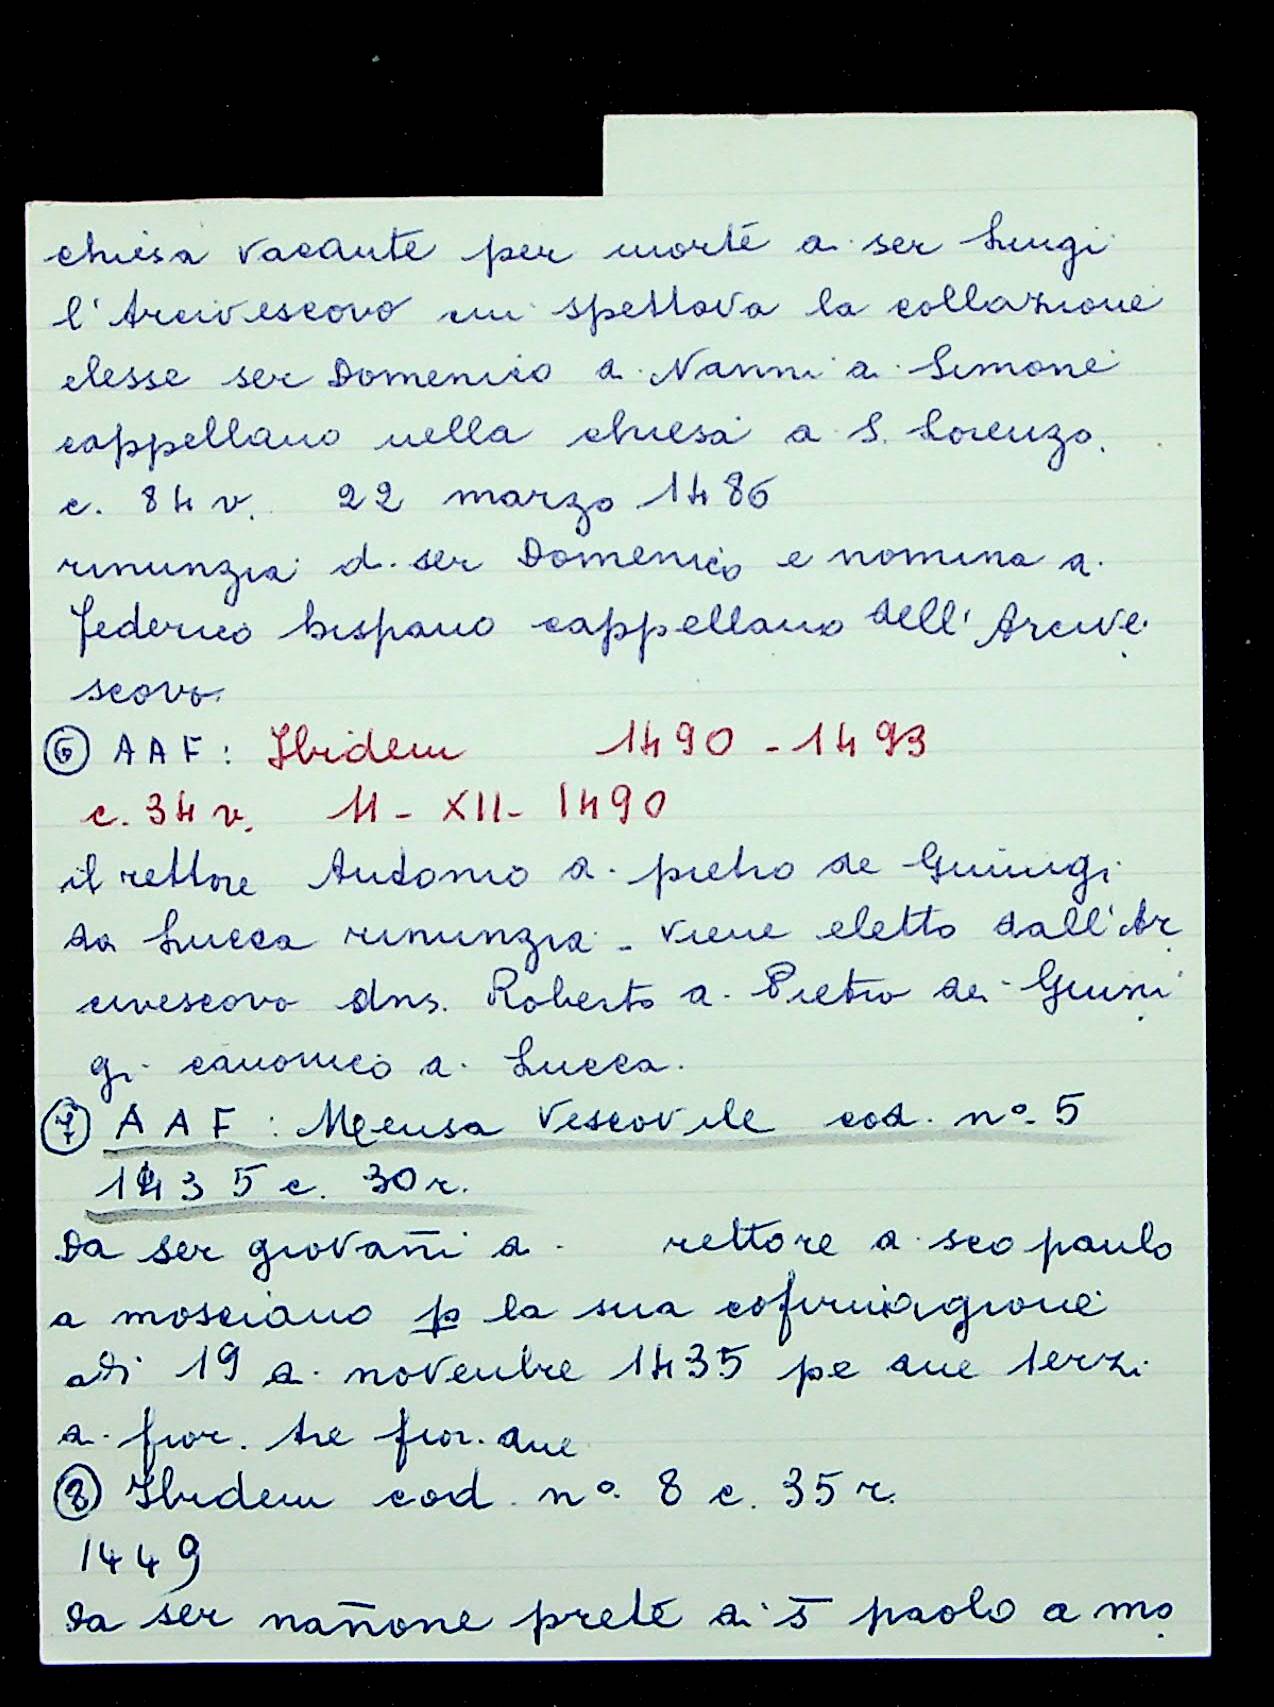 chiesa vacante per morte di ser Luigi
l'Arcivescovo cui spettava la collazione
elesse ser Domenico di Nanni di Simone
cappellano nella chiesa di S. Lorenzo.
c. 84 v. 22 marzo 1486
rinunzia di ser Domenico e nomina di
Federico hispano cappellano dell'Arcive
scovo.
6 AAF: Ibidem 1490-1493
c. 34 v. 11-XII-1490
il rettore Antonio di pietro de Guinigi
da Lucca rinunzia - viene eletto dall'Ar
civescovo dns. Roberto di Pietro dei Guini
gi canonico di Lucca.
7 AAF: Mensa Vescovile cod. n° 5
1435 c. 30 r.
Da ser giovañi di rettore di sco paulo
a mosciano p la sua cofirmagione
adi 19 di novenbre 1435 pe due terzi
di fior. tre fior. due
8 Ibidem cod. n° 8 c. 35 r.
1449
Da ser nañone prete di S paolo a mo